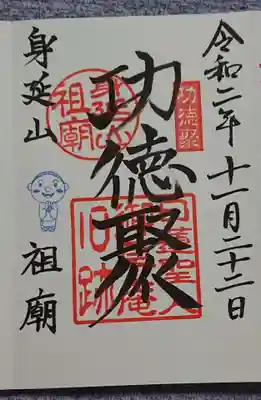 令和二年十一月二十二日
功徳聚
功徳聚
身延山
祖廟
日蓮聖人
御草庵
旧跡
身延山
祖廟